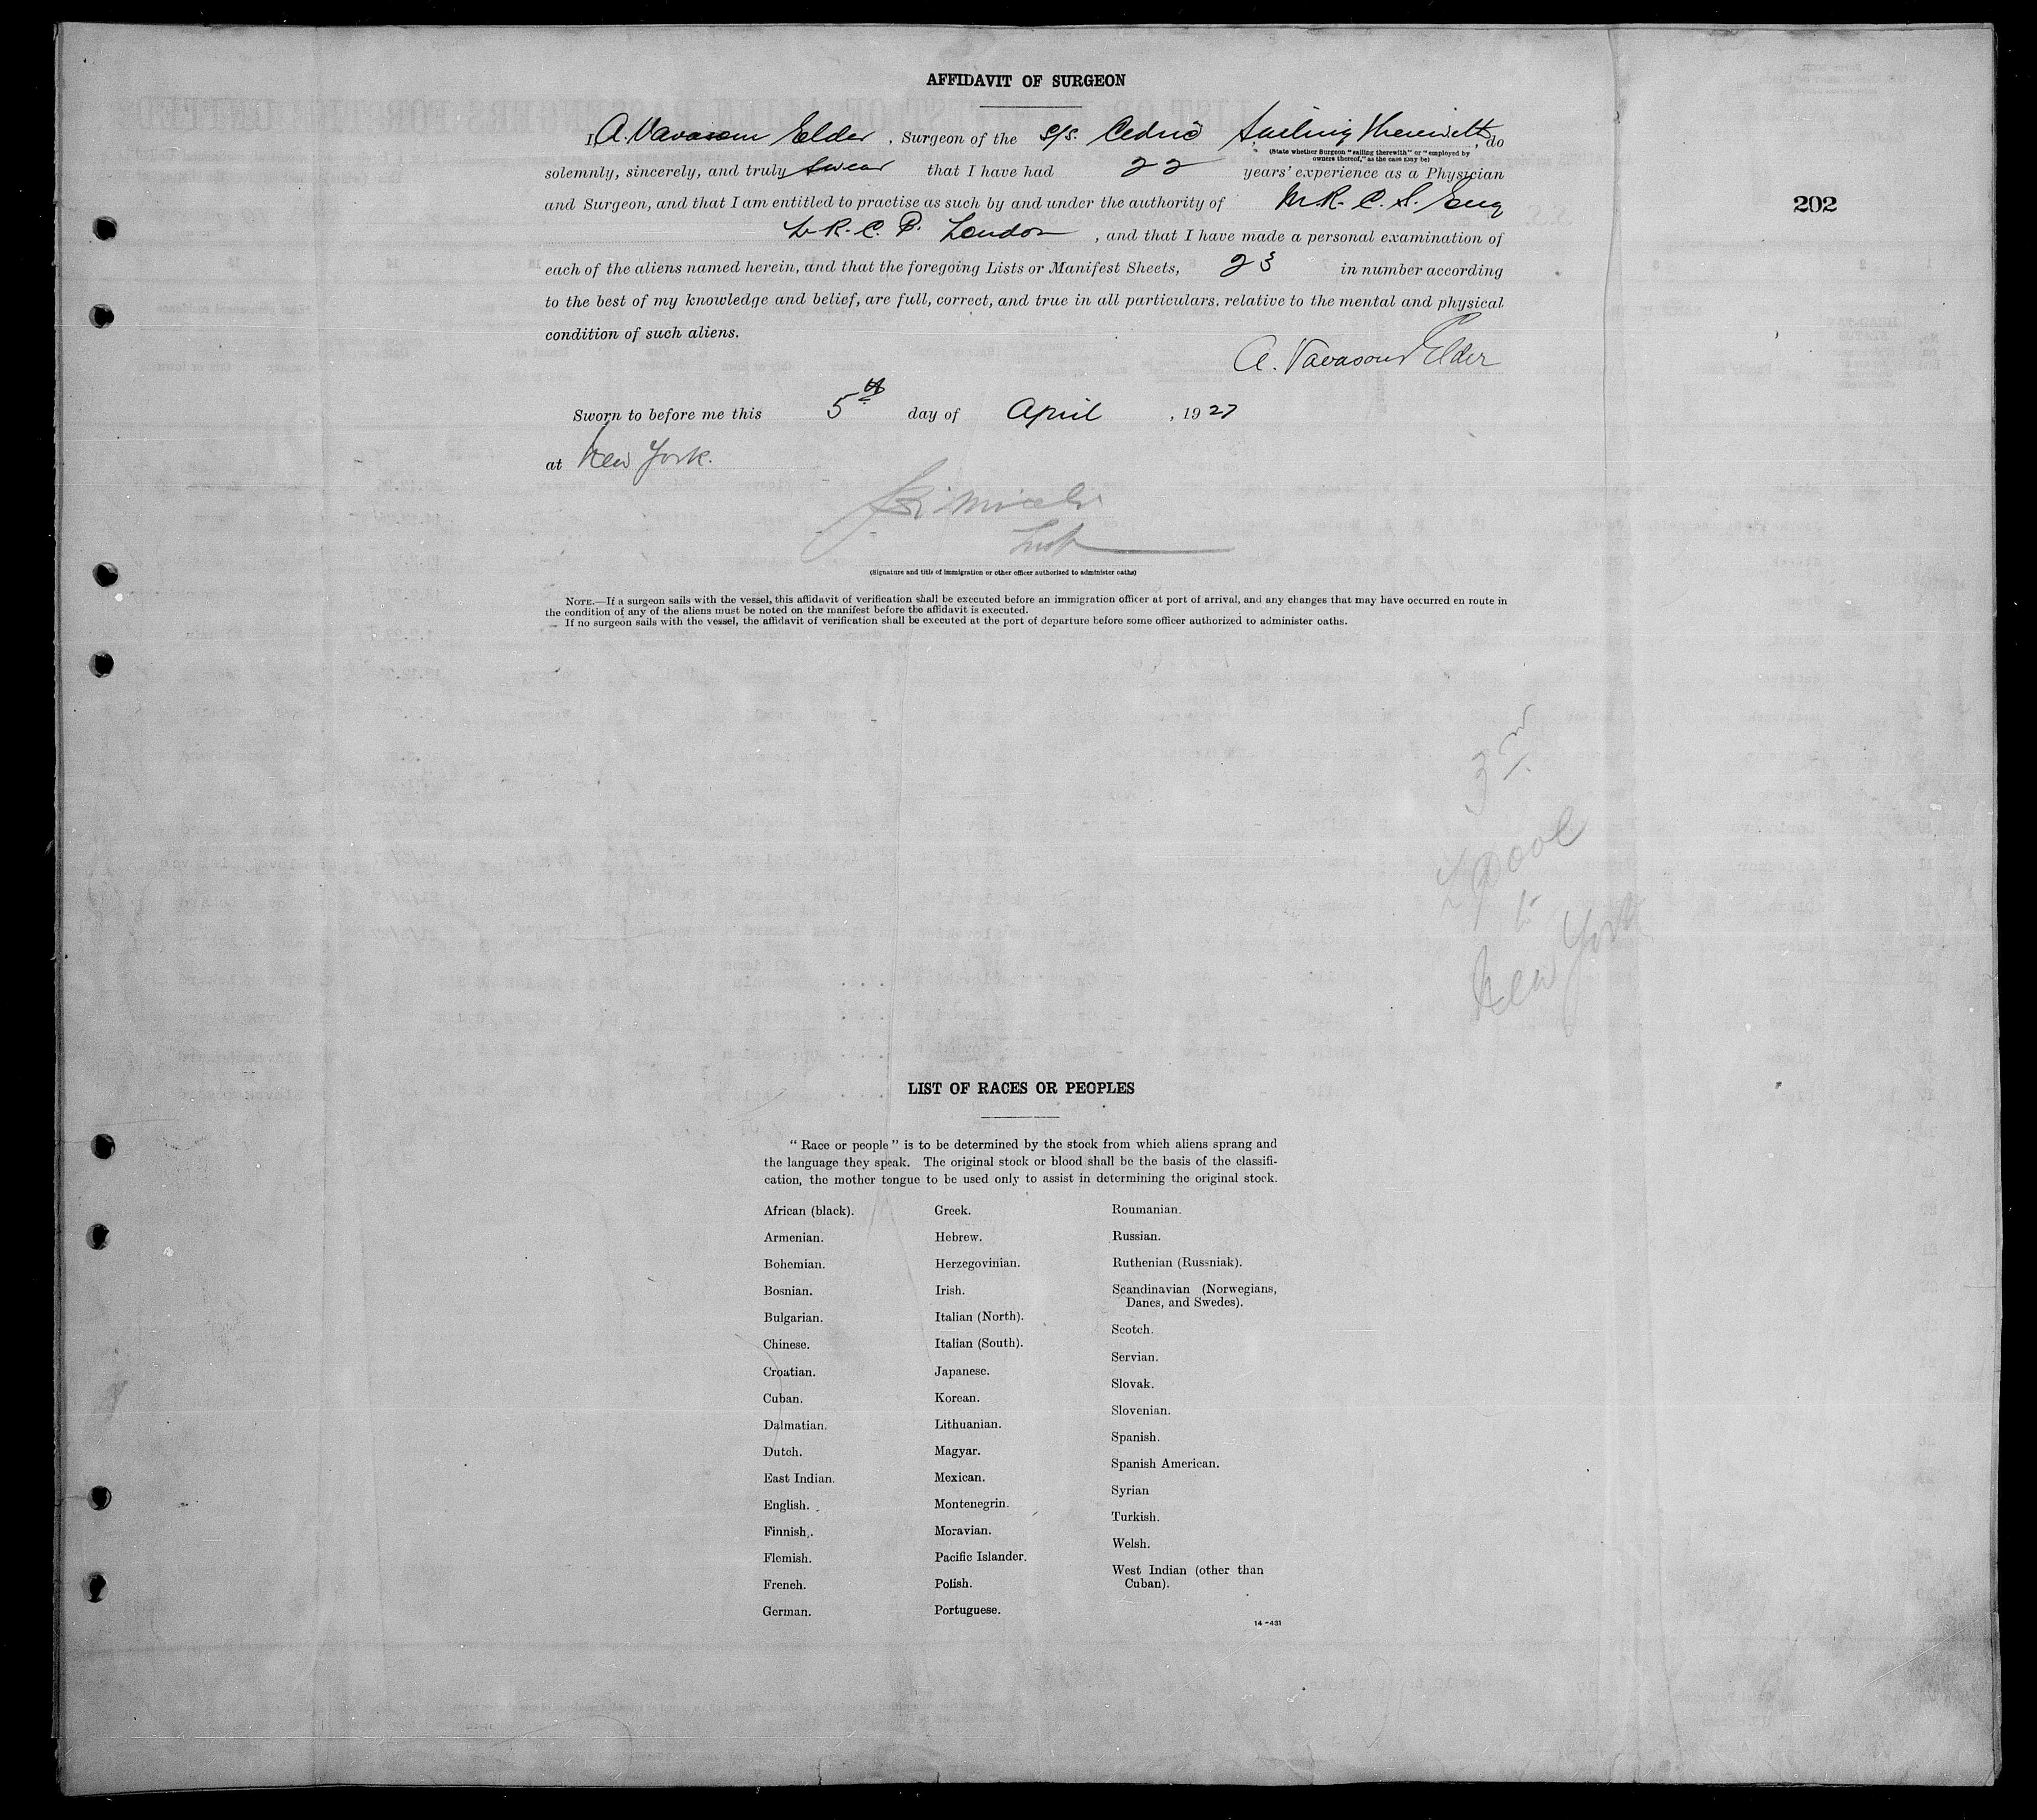 AFFIDAVIT OF SURGEON
I A. Vavasour Elder, Surgeon of the s/s. Cedric Sailing therewith, do
(State whether Surgeon "sailing therewith" or "employed by
owners thereof," as the case may be)
solemnly, sincerely, and truly swear that I have had 22 years' experience as a Physician
and Surgeon, and that I am entitled to practise as such by and under the authority of M.R.C.S. Eng
202
L.R.C.P. London, and that I have made a personal examination of
each of the aliens named herein, and that the foregoing Lists or Manifest Sheets, 23 in number according
to the best of my knowledge and belief, are full, correct, and true in all particulars, relative to the mental and physical
condition of such aliens.
A. Vavasour Elder
Sworn to before me this 5th day of April, 1927
at New York.
Insp
(Signature and title of immigration or other officer authorized to administer oaths)
NOTE.—If a surgeon sails with the vessel, this affidavit of verification shall be executed before an immigration officer at port of arrival, and any changes that may have occurred en route in
the condition of any of the aliens must be noted on the manifest before the affidavit is executed.
If no surgeon sails with the vessel, the affidavit of verification shall be executed at the port of departure before some officer authorized to administer oaths.
3rd
L'pool
to
New York
LIST OF RACES OR PEOPLES
"Race or people" is to be determined by the stock from which aliens sprang and
the language they speak. The original stock or blood shall be the basis of the classifi-
cation, the mother tongue to be used only to assist in determining the original stock.
African (black).
Armenian.
Bohemian.
Bosnian.
Bulgarian.
Chinese.
Croatian.
Cuban.
Dalmatian.
Dutch.
East Indian.
English.
Finnish.
Flemish.
French.
German.
Greek.
Hebrew.
Herzegovinian.
Irish.
Italian (North).
Italian (South).
Japanese.
Korean.
Lithuanian.
Magyar.
Mexican.
Montenegrin.
Moravian.
Pacific Islander.
Polish.
Portuguese.
Roumanian.
Russian.
Ruthenian (Russniak).
Scandinavian (Norwegians,
Danes, and Swedes).
Scotch.
Servian.
Slovak.
Slovenian.
Spanish.
Spanish American.
Syrian
Turkish.
Welsh.
West Indian (other than
Cuban).
14-431